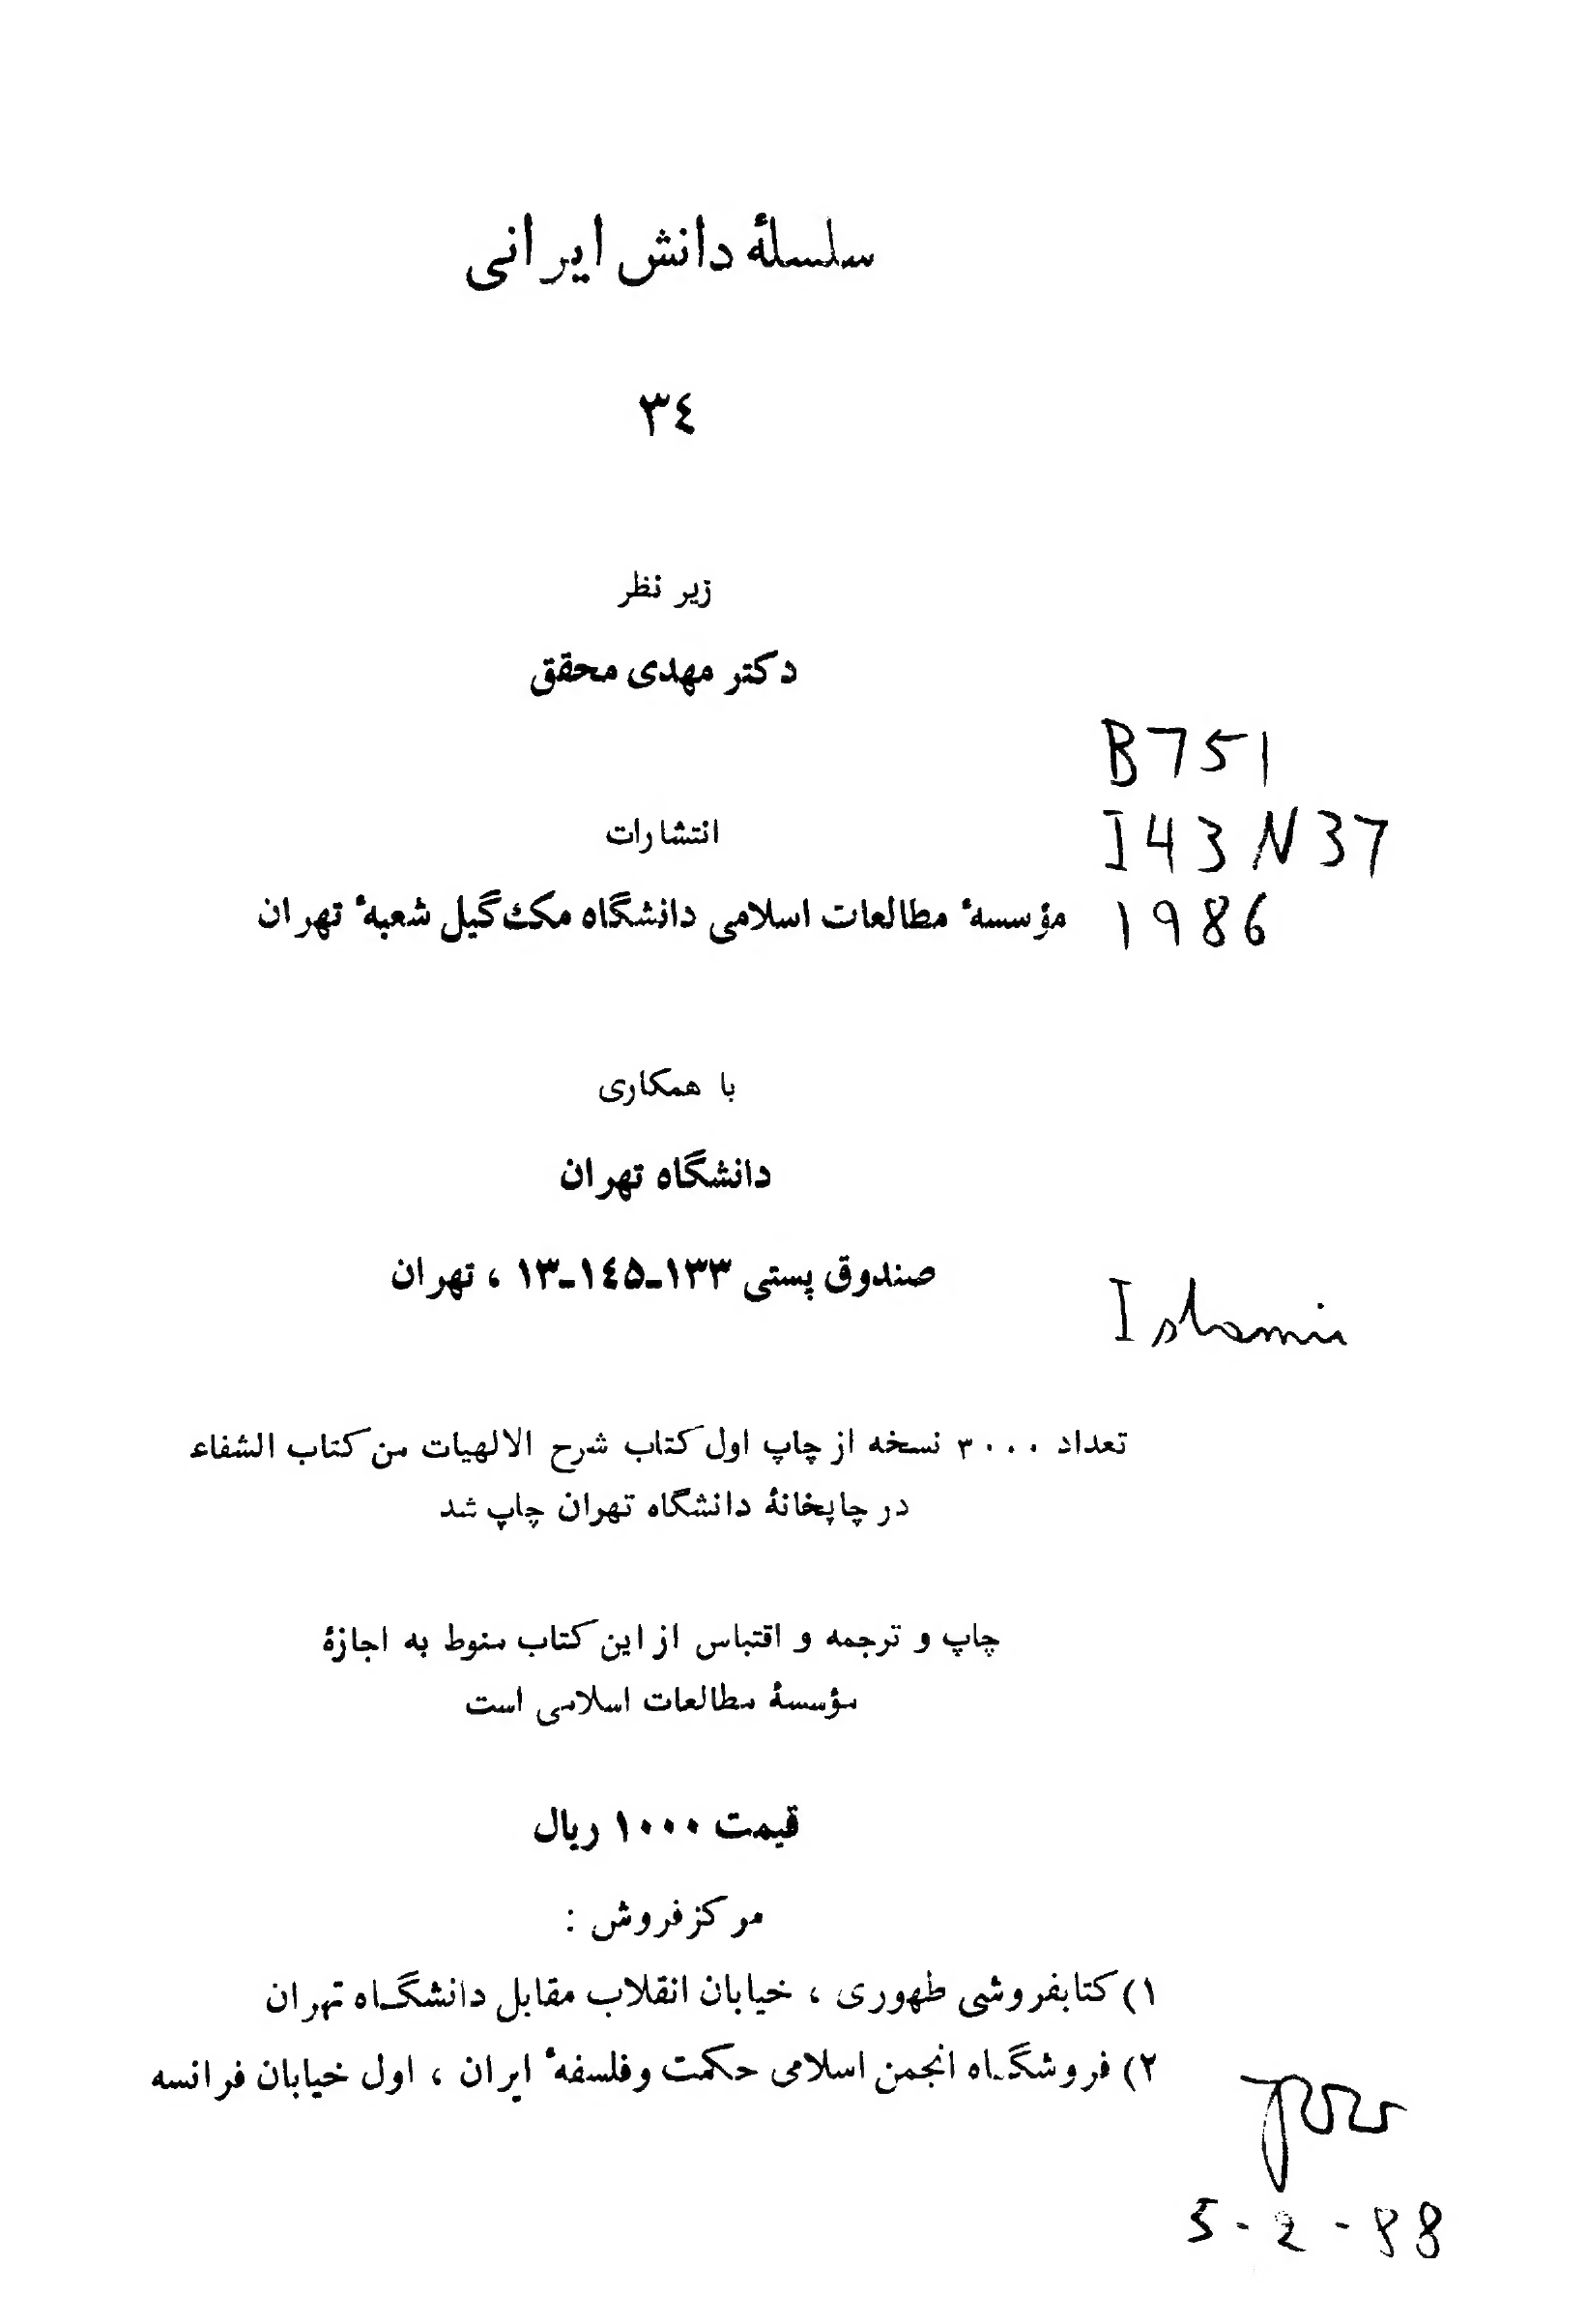 سلسلهٔ دانش ایرانی
٣٤
زیر نظر
دکتر مهدی محقق
B751
انتشارات
I43N37
مؤسسهٔ مطالعات اسلامی دانشگاه مک‌گیل شعبهٔ تهران
1986
با همکاری
دانشگاه تهران
صندوق پستی ١٣٣-١٤۵-١٣ ، تهران
تعداد ٣٠٠٠ نسخه از چاپ اول کتاب شرح الالهیات من کتاب الشفاء
در چاپخانهٔ دانشگاه تهران چاپ شد
چاپ و ترجمه و اقتباس از این کتاب منوط به اجازهٔ
مؤسسهٔ مطالعات اسلامی است
قیمت ١٠٠٠ ریال
مرکز فروش :
١) کتابفروشی طهوری ، خیابان انقلاب مقابل دانشگاه تهران
٢) فروشگاه انجمن اسلامی حکمت وفلسفهٔ ایران ، اول خیابان فرانسه
5-2-88